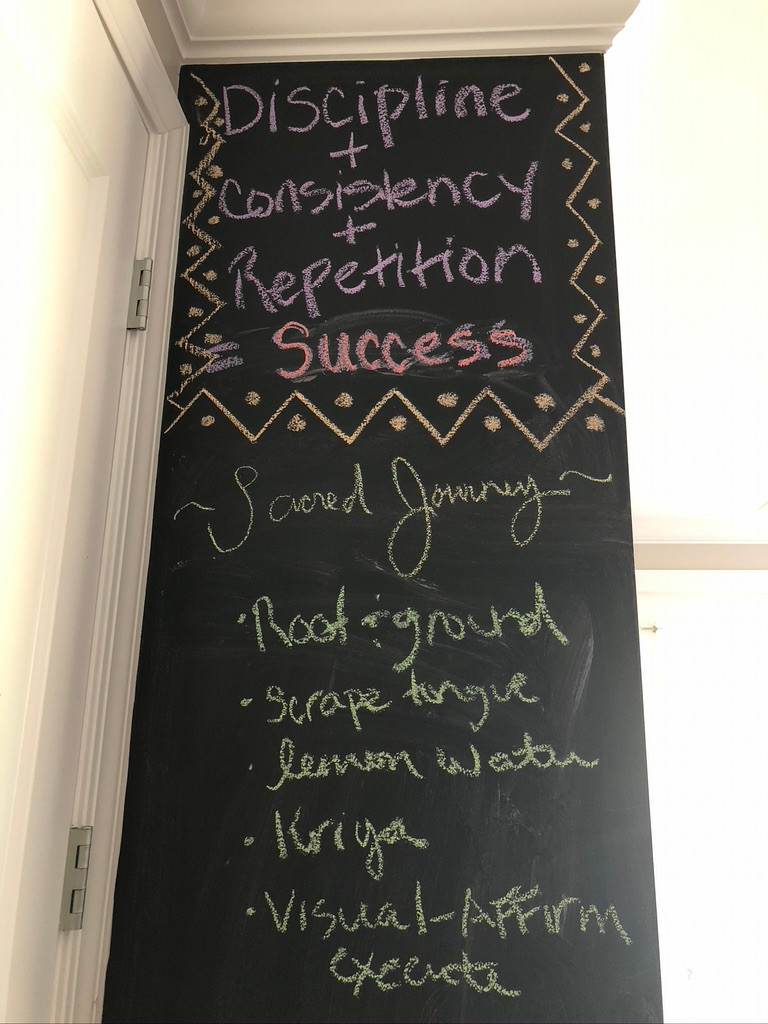 Discipline
+
Consistency
+
Repetition
= Success
~ Sacred Journey ~
• Root + ground
• Scrape tongue
lemon water
• Kriya
• Visual-Affirm
execute